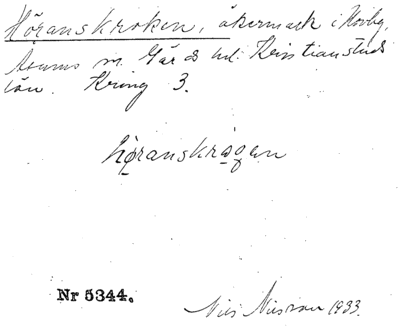 Höranskroken, åkermark i Horby,
Araums sn. Gärds hd. Kristianstads
län. Kring 3.
höranskrogen
Nr 5344.
Nils Nilsson 1933.